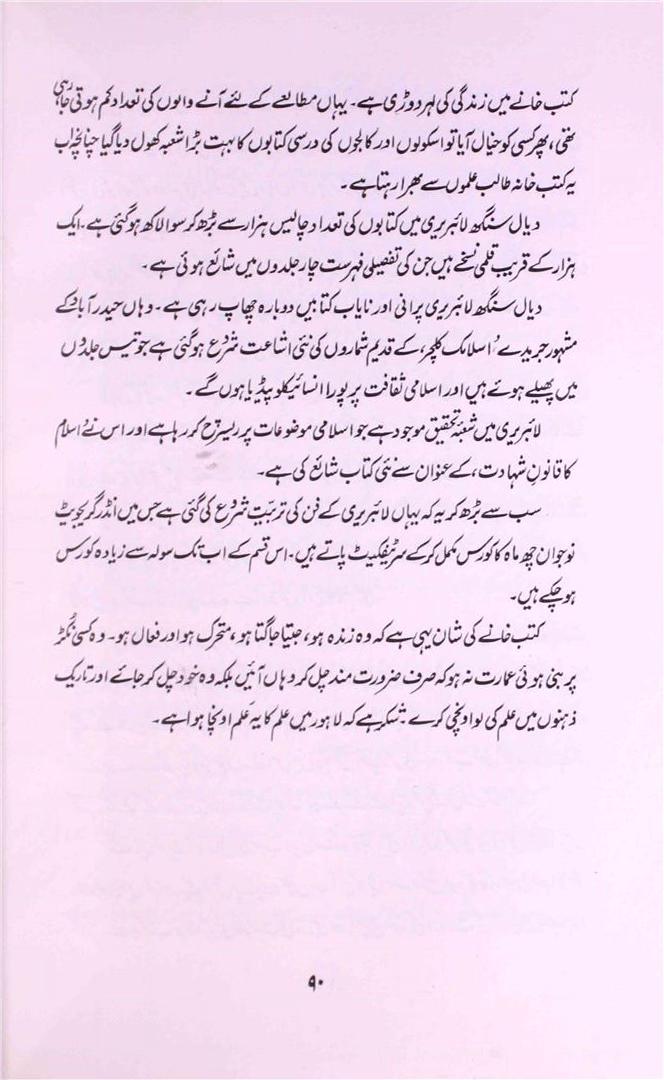 کتب خانے میں زندگی کی لہر دوڑی ہے۔ یہاں مطالعے کے لئے آنے والوں کی تعداد کم ہوتی جا رہی
تھی، پھر کسی کو خیال آیا تو اسکولوں اور کالجوں کی درسی کتابوں کا بہت بڑا شعبہ کھول دیا گیا چنانچہ اب
یہ کتب خانہ طالب علموں سے بھرا رہتا ہے۔
دیال سنگھ لائبریری میں کتابوں کی تعداد چالیس ہزار سے بڑھ کر سوا لاکھ ہو گئی ہے۔ ایک
ہزار کے قریب قلمی نسخے ہیں جن کی تفصیلی فہرست چار جلدوں میں شائع ہوئی ہے۔
دیال سنگھ لائبریری پرانی اور نایاب کتابیں دوبارہ چھاپ رہی ہے۔ وہاں حیدرآباد کے
مشہور جریدے 'اسلامک کلچر' کے قدیم شماروں کی نئی اشاعت شروع ہو گئی ہے جو تیس جلدوں
میں پھیلے ہوئے ہیں اور اسلامی ثقافت پر پورا انسائیکلو پیڈیا ہوں گے۔
لائبریری میں شعبۂ تحقیق موجود ہے جو اسلامی موضوعات پر ریسرچ کر رہا ہے اور اس نے 'اسلام
کا قانونِ شہادت' کے عنوان سے نئی کتاب شائع کی ہے۔
سب سے بڑھ کر یہ کہ یہاں لائبریری کے فن کی تربیت شروع کی گئی ہے جس میں انڈر گریجویٹ
نوجوان چھ ماہ کا کورس مکمل کر کے سرٹیفکیٹ پاتے ہیں۔ اس قسم کے اب تک سولہ سے زیادہ کورس
ہو چکے ہیں۔
کتب خانے کی شان یہی ہے کہ وہ زندہ ہو، جیتا جاگتا ہو، متحرک ہو اور فعال ہو۔ وہ کسی نکڑ
پر بنی ہوئی عمارت نہ ہو کہ صرف ضرورت مند چل کر وہاں آئیں بلکہ وہ خود چل کر جائے اور تاریک
ذہنوں میں علم کی لو اونچی کرے۔ شکر ہے کہ لاہور میں علم کا یہ عَلم اونچا ہوا ہے۔
۹۰